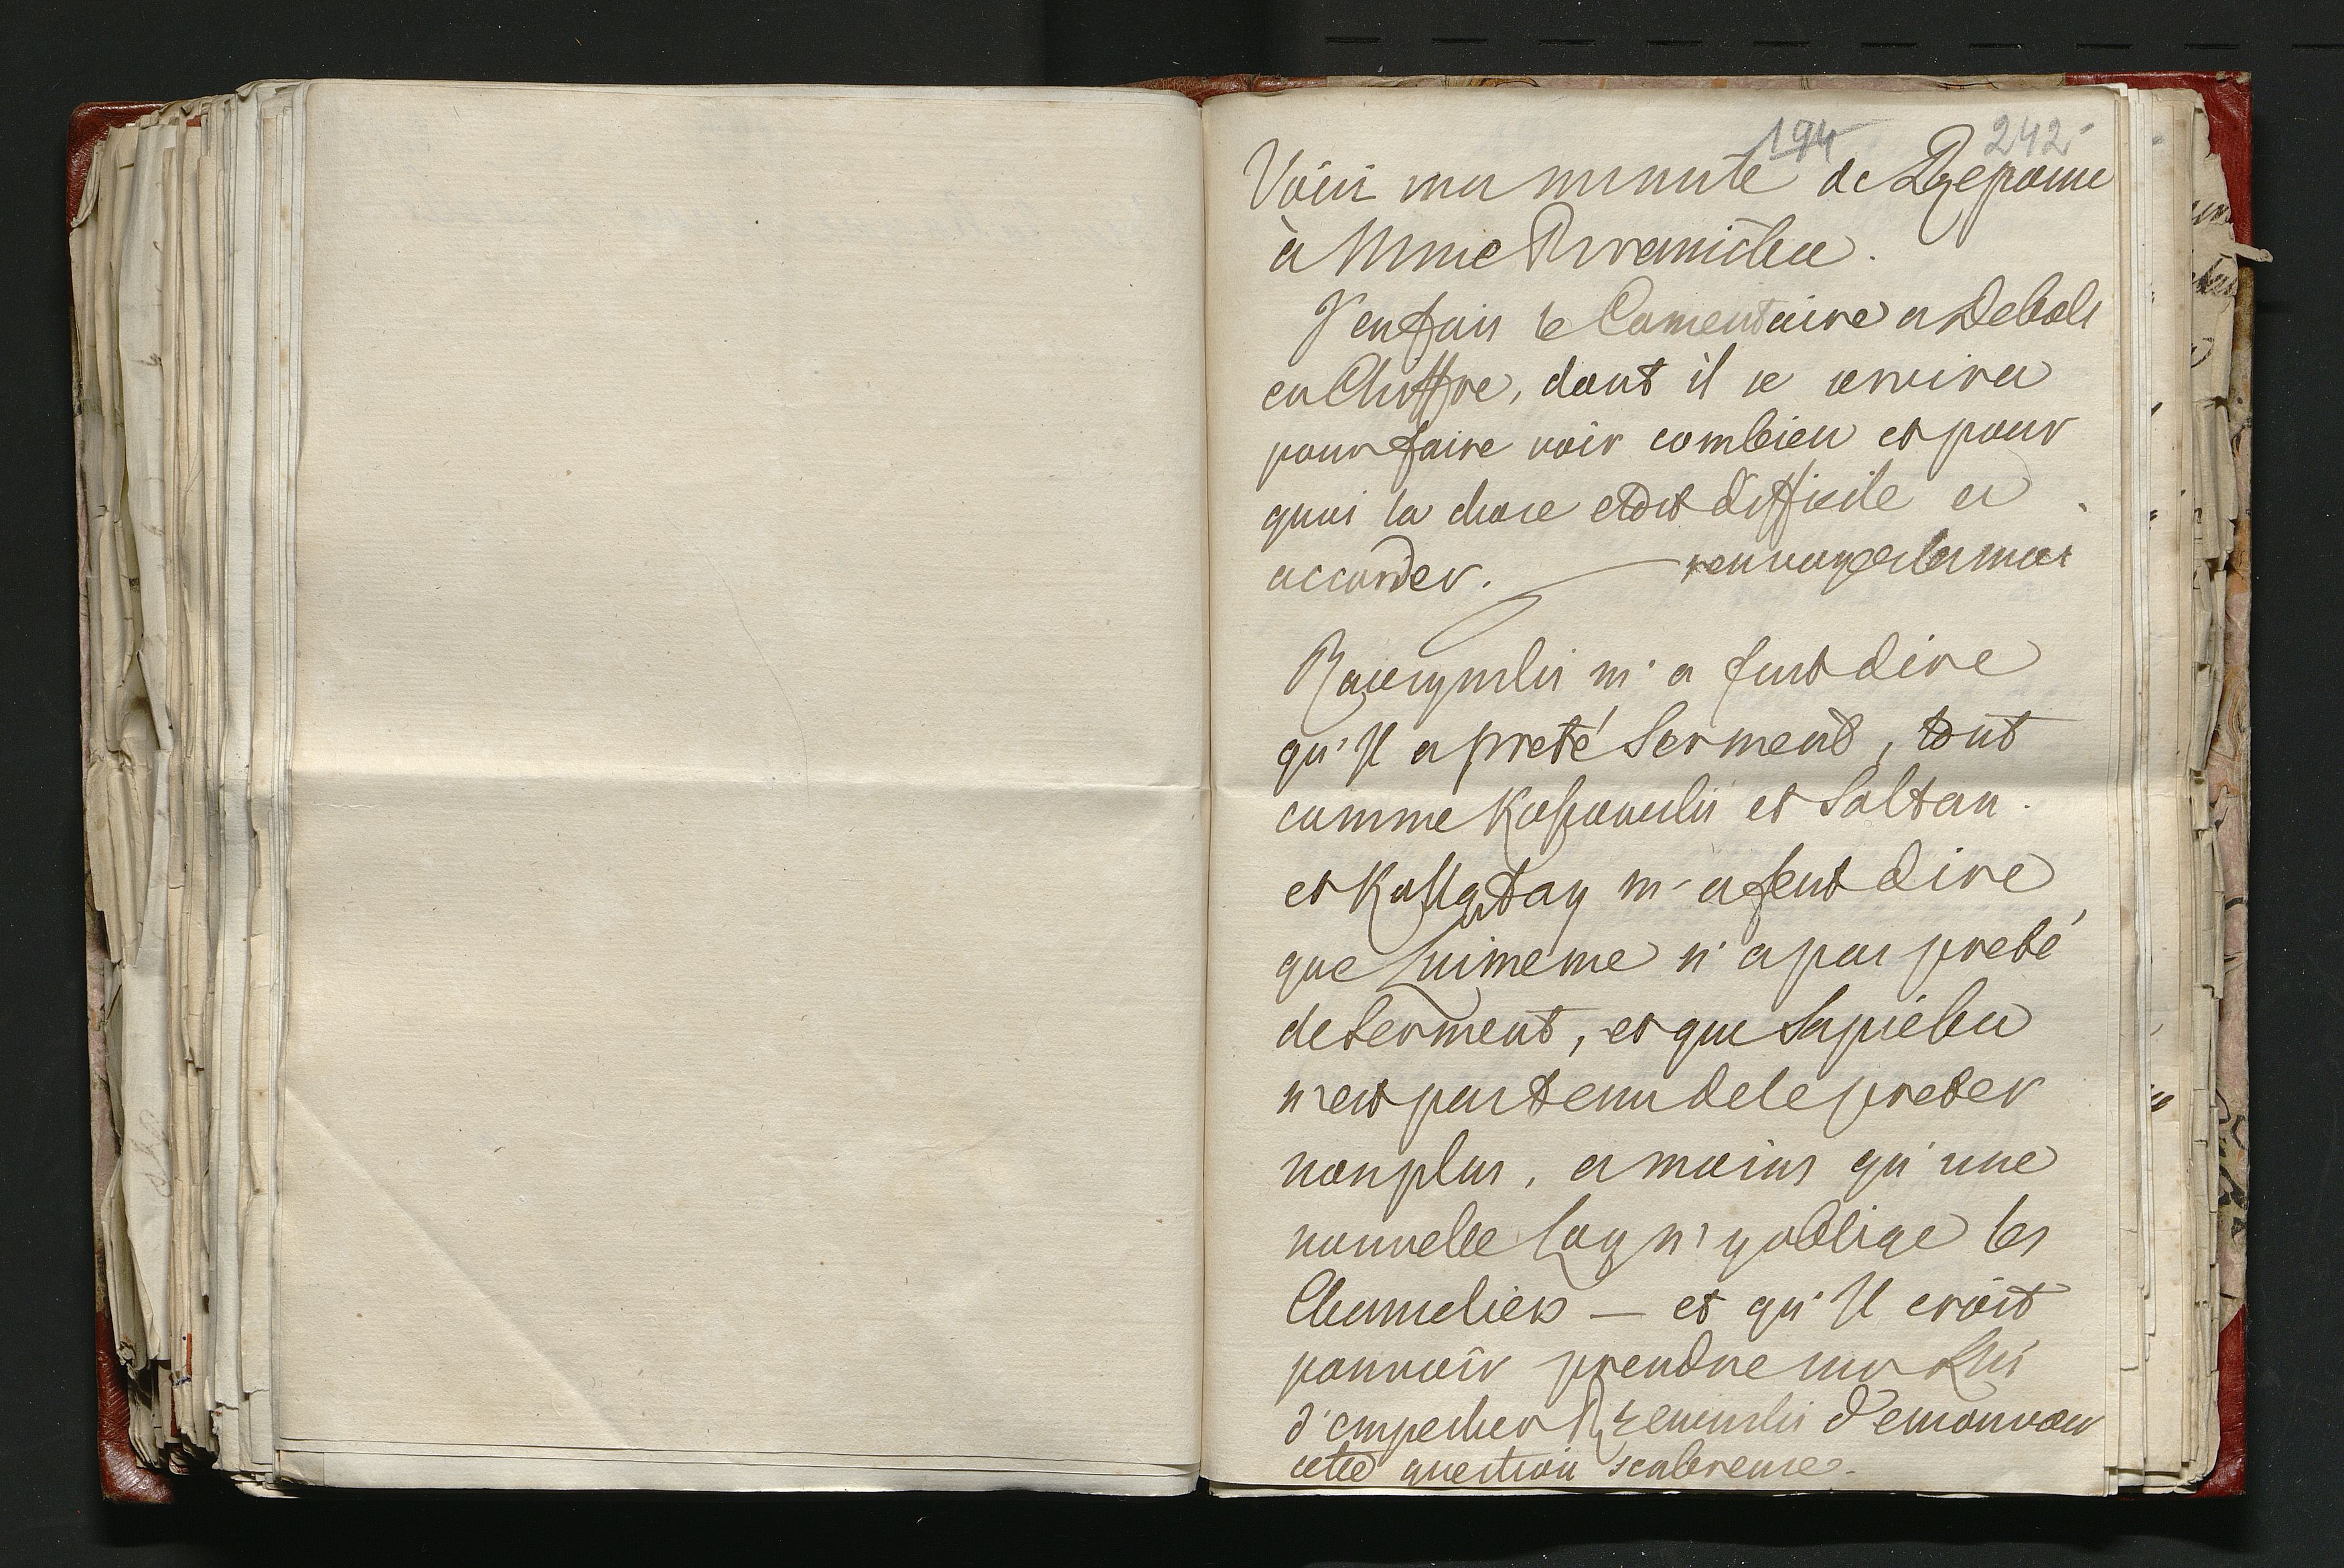 194 242
Voici ma minute de Reponse
à Mme Braniçka.
J'en fais le Comentaire a Deboli
en Chiffre, dont il se servira
pour faire voir combien et pour
quoi la chose etoit difficile a
accorder. renvoyez la moi
Raczynski m'a fait dire
qu'Il a preté Serment, tout
comme Kossowski et Soltan.
et Kollątay m'a fait dire
que Luimeme n'a pas preté
de Serment, et que Sapieha
n'est pas tenu de le preter
nonplus, a moins qu'une
nouvelle Loy n'y oblige les
Chanceliers — et qu'Il croit
pouvoir prendre sur Lui
d'empecher Rzewuski d'emouvoir
cette question scabreuse.